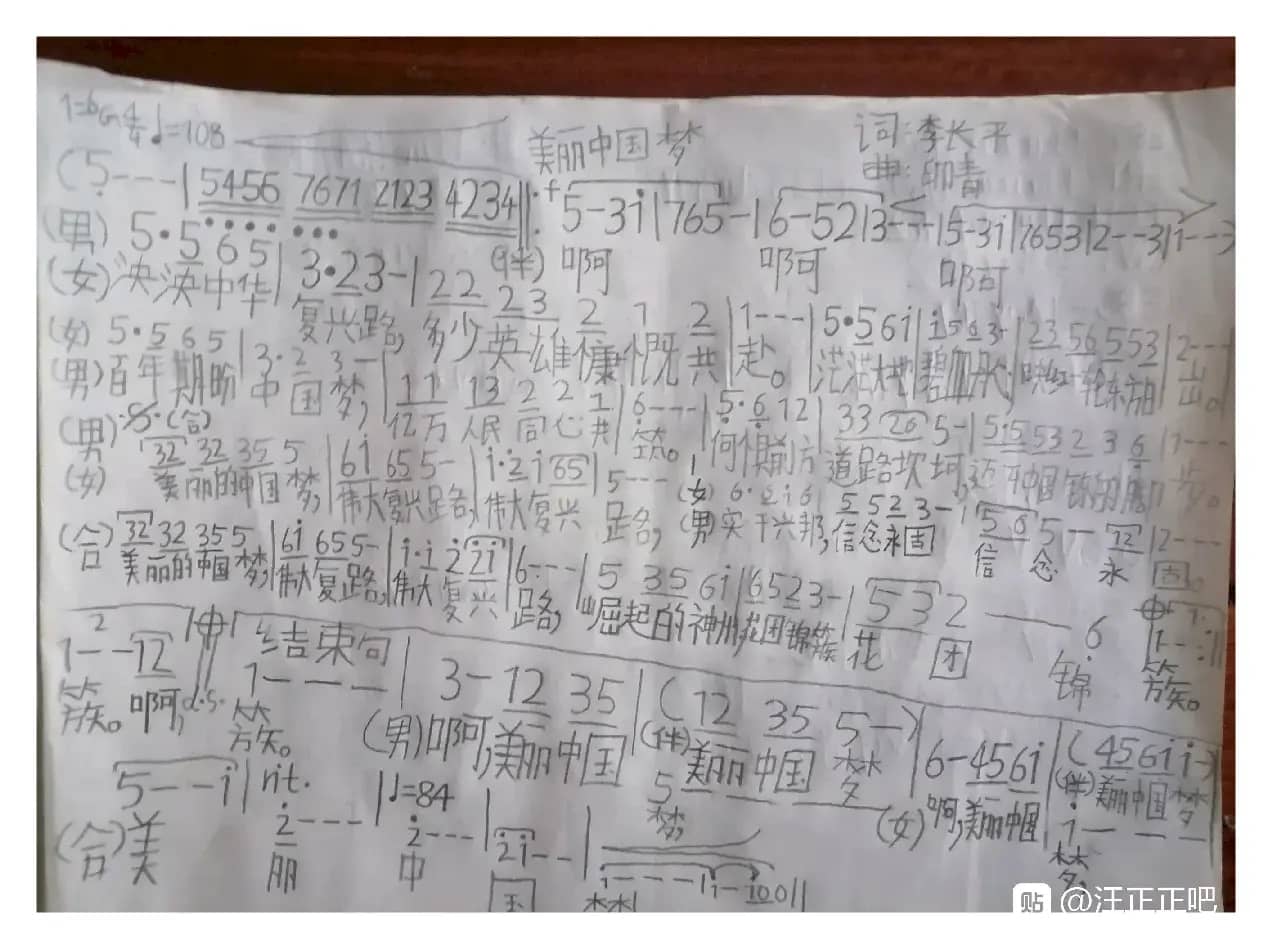 1=bG 4/4 ♩=108
美丽中国梦
词:李长平
曲:印青
(5---|5456 7671 2123 4234‖:f 5-3i|765-|6-52|3---|5-3i|7653|2--3|1---)
(伴) 啊 啊 啊
(男) 5·5 6 5|3·2 3-|2 2 2 3 2 1 2|1---|5·5 6 i|i 5 6 3-|23 56 5 53|2---
(女) 泱泱中华 复兴路,多少英雄慷慨共赴。茫茫大地 碧血丹心 一轮东方 出。
(女) 5·5 6 5|3·2 3-|11 13 2 2 1|6---|5·6 12|33 26 5-|5·5 53 2 3 6|1---
(男) 百年期盼 中国梦,亿万人民同心共筑。何惧前方道路坎坷, 中国 步。
(男) (合)
(女) 32 32 35 5|6i 65 5-|i·2 i 65|5---|6·6 i 6|5 52 3-|5 6 5- 12|2---
美丽的中国梦,伟大复兴路,伟大复兴路, (女)(男)实干兴邦,信念永固 信念永固。
(合) 32 32 35 5|6i 65 5-|i·i 2 2i|6---|5 35 6i|6523-|5 3 2 —— 6|1--:‖
美丽的中国梦,伟大复路,伟大复兴路,崛起的神州,花团锦簇 花团锦簇。
1--12 结束句 1---|3-12 35|(12 35 5-)|6-45 6i|(45 6i i-)
簇。啊,d.s. 簇。(男)啊,美丽中国(伴)美丽中国梦 (女)啊,美丽中国(伴)美丽中国梦
5 梦, 1 - - - 梦,
5--i|rit. 2---|♩=84 2---|2i--|1---|1-100‖
(合)美丽中国
贴 @汪正正吧